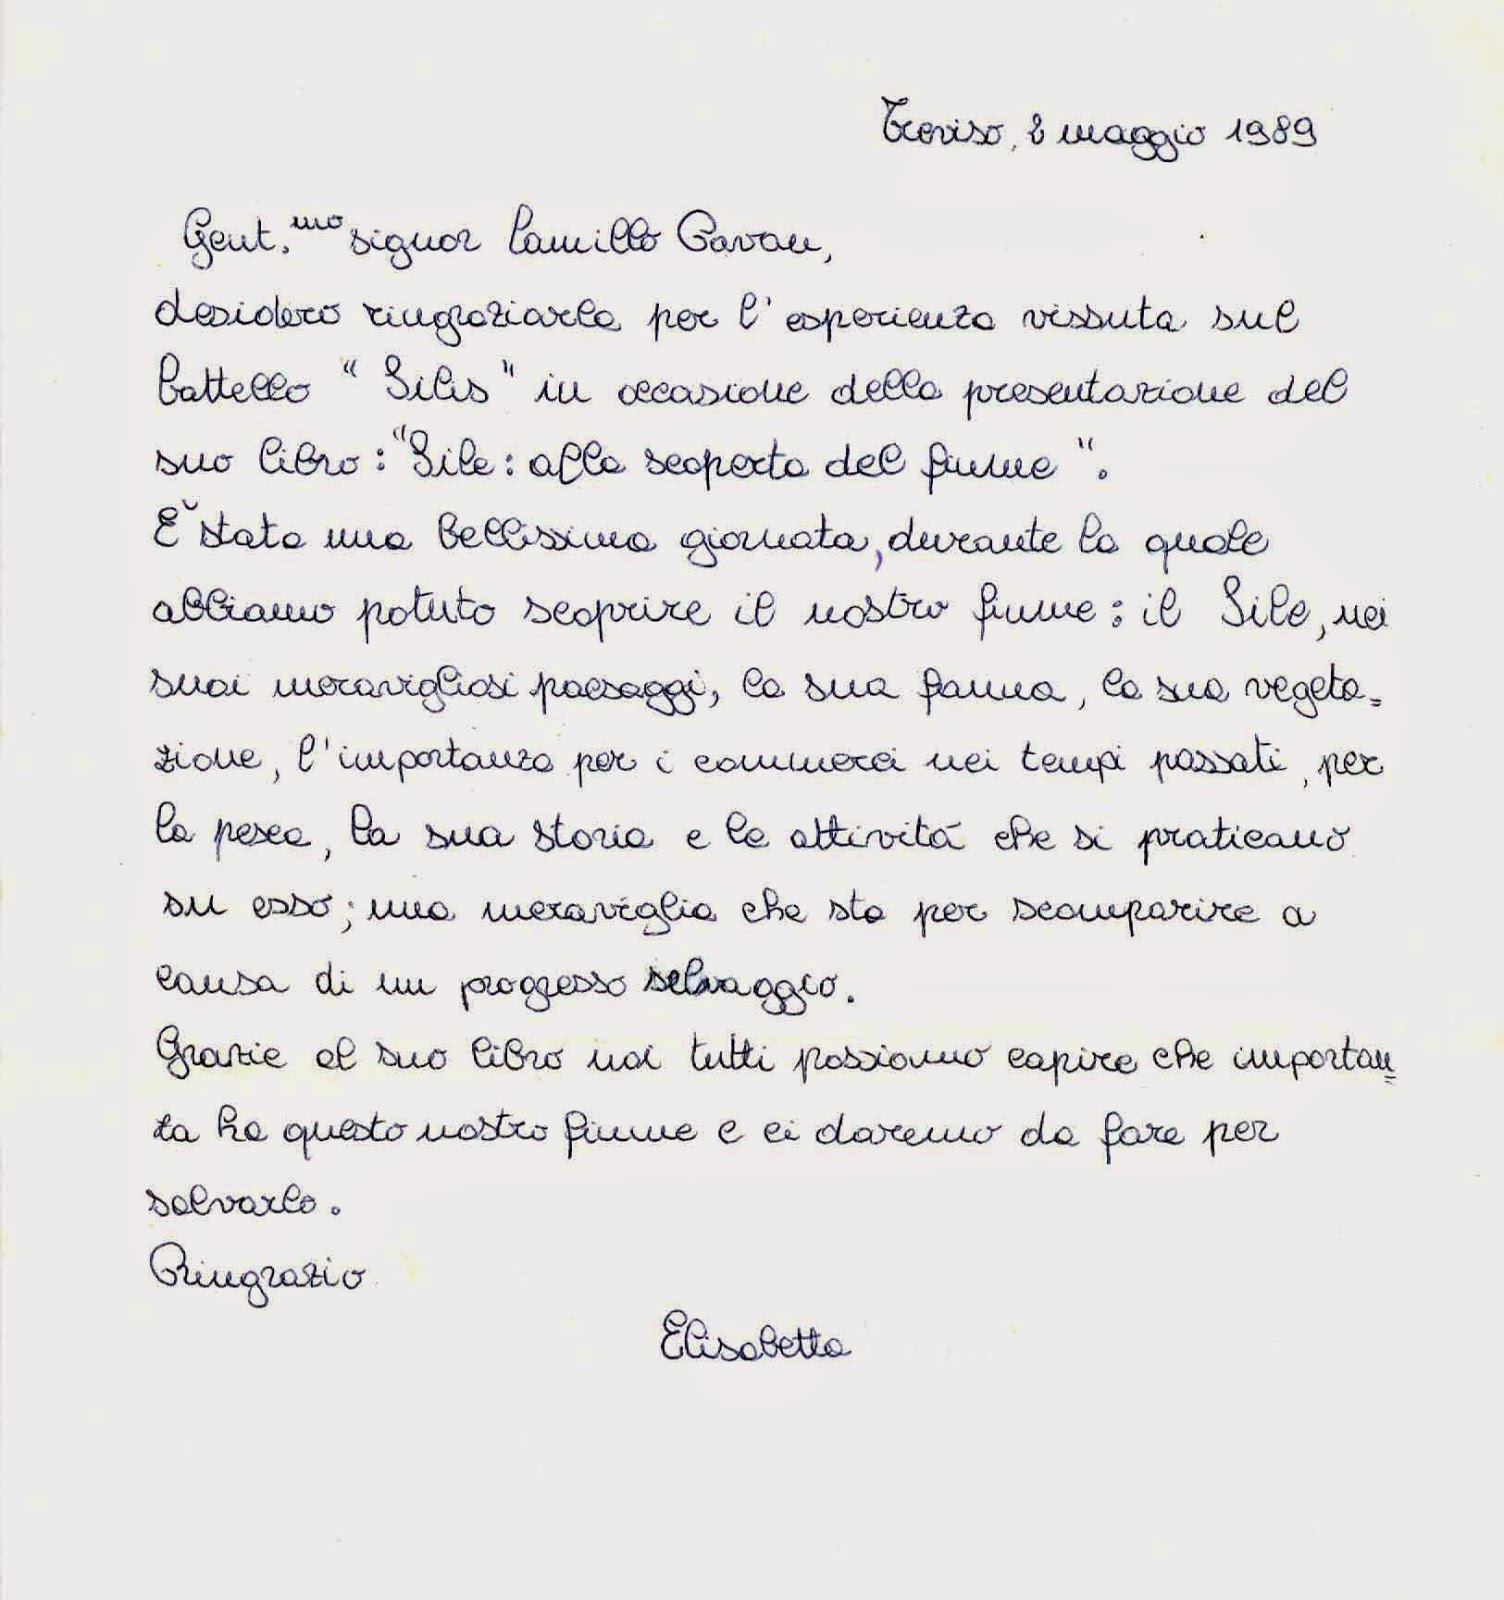 Treviso, 2 maggio 1989
Gent.mo signor Camillo Pavan,
desidero ringraziarla per l'esperienza vissuta sul
battello "Silis" in occasione della presentazione del
suo libro: "Sile: alla scoperta del fiume".
E' stata una bellissima giornata, durante la quale
abbiamo potuto scoprire il nostro fiume: il Sile, nei
suoi meravigliosi paesaggi, la sua fauna, la sua vegeta=
zione, l'importanza per i commerci nei tempi passati, per
la pesca, la sua storia e le attività che si praticano
su esso; una meraviglia che sta per scomparire a
causa di un progresso selvaggio.
Grazie al suo libro noi tutti possiamo capire che importan=
za ha questo nostro fiume e ci daremo da fare per
salvarlo.
Ringrazio
Elisabetta